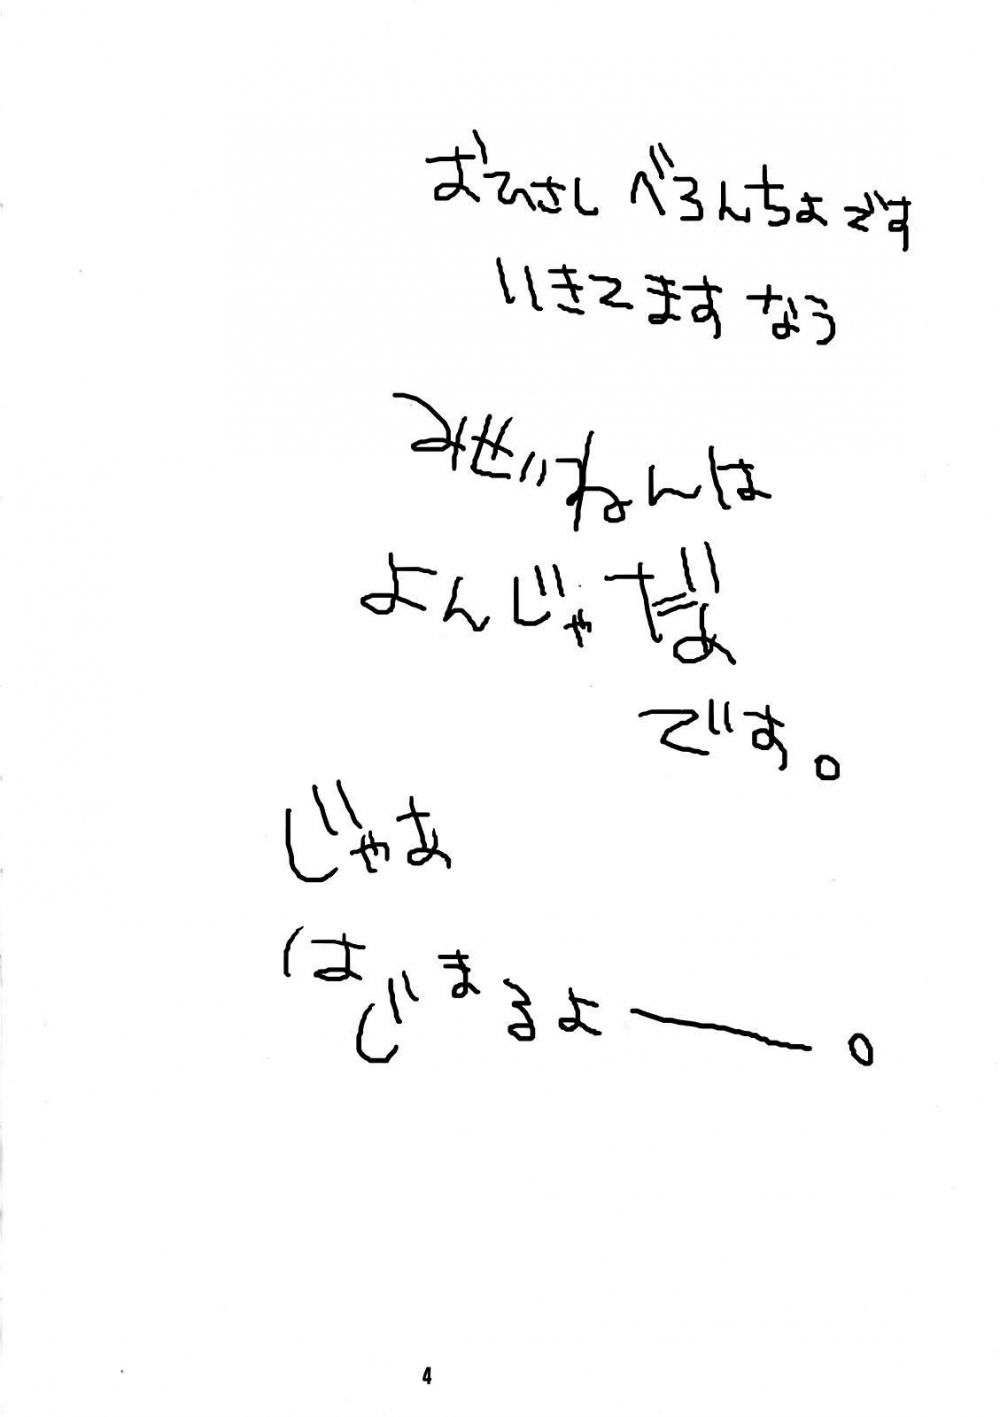 おひさし べろんちょです
いきてます なう
みせいねんは
よんじゃだよ
です。
じゃあ
はじまるよー。
4